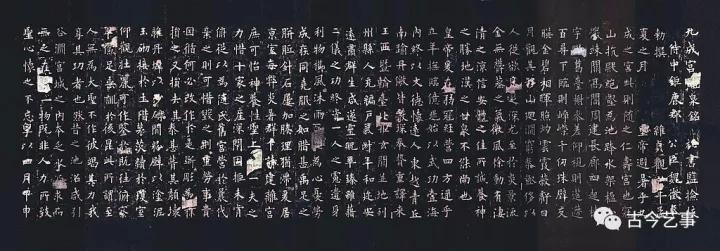 九成宮醴泉銘 秘書監撿挍
侍中鉅鹿郡公臣魏徵奉
勅撰 維貞觀六年孟
夏之月 帝避暑乎九
成之宮此則隨之仁壽宮也冠
山抗殿絕壑為池跨水架楹分
巖竦闕高閣周建長廊四起棟
宇膠葛臺榭參差仰視則迢遰
百尋下臨則崢嶸千仞珠璧交
映金碧相暉照灼雲霞蔽虧日
月觀其移山迴澗窮泰極侈以
人從欲良足深尤至於炎景流
金無鬱蒸之氣微風徐動有淒
清之涼信安體之佳所誠養神
之勝地漢之甘泉不能尚也
皇帝爰在弱冠經營四方逮乎
立年撫臨億兆始以武功壹海
內終以文德懷遠人東越青丘
南踰丹徼皆獻琛奉贄重譯來
王西暨輪臺北拒玄闕並地列
州縣人充編戶氣淑年和邇安
遠肅群生咸遂靈貺畢臻雖藉
二儀之功終資一人之慮遺身
利物櫛風沐雨百姓為心憂勞
成疾同堯肌之如腊甚禹足之
胼胝針石屢加腠理猶滯爰居
京室每弊炎暑群下請建離宮
庶可怡神養性聖上愛一夫之
力惜十家之產深閉固拒未肯
俯從以為隨氏舊宮營於曩代
棄之則可惜毀之則重勞事貴
因循何必改作於是斲彫為樸
損之又損去其泰甚葺其頹壞
雜丹墀以沙礫間粉壁以塗泥
玉砌接於土階茅茨續於瓊室
仰觀壯麗可作鑒於既往俯察
卑儉足垂訓於後昆此所謂至
人無為大聖不作彼竭其力我
享其功者也然昔之池沼咸引
谷澗宮城之內本乏水源求而
無之在乎一物既非人力所致
聖心懷之不忘粵以四月甲申
古今艺事